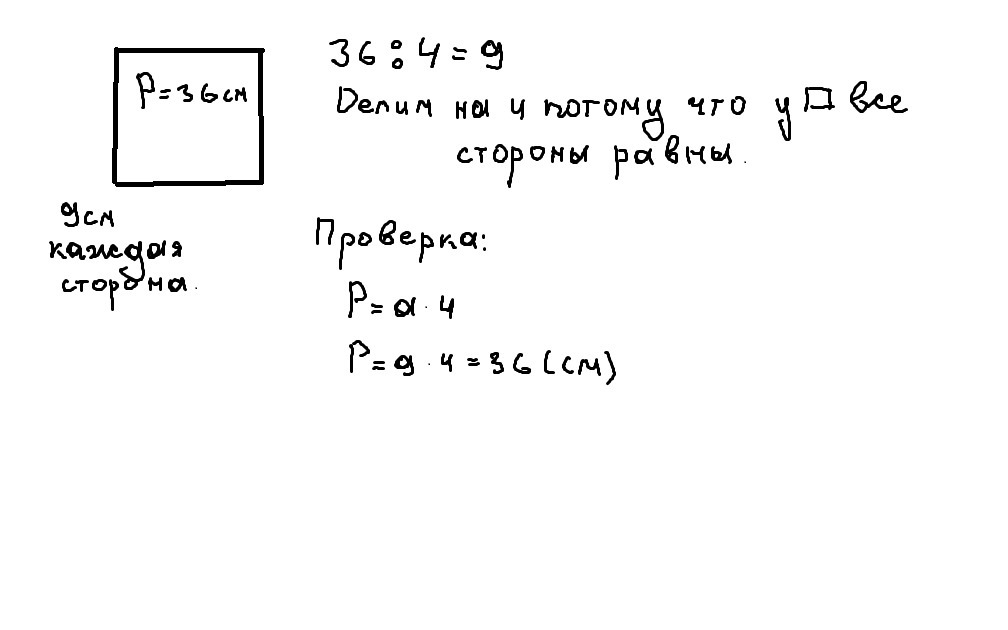 P=36см
36:4=9
Делим на 4 потому что у □ все
стороны равны.
9см
каждая
сторона.
Проверка:
P=a·4
P=9·4=36(см)